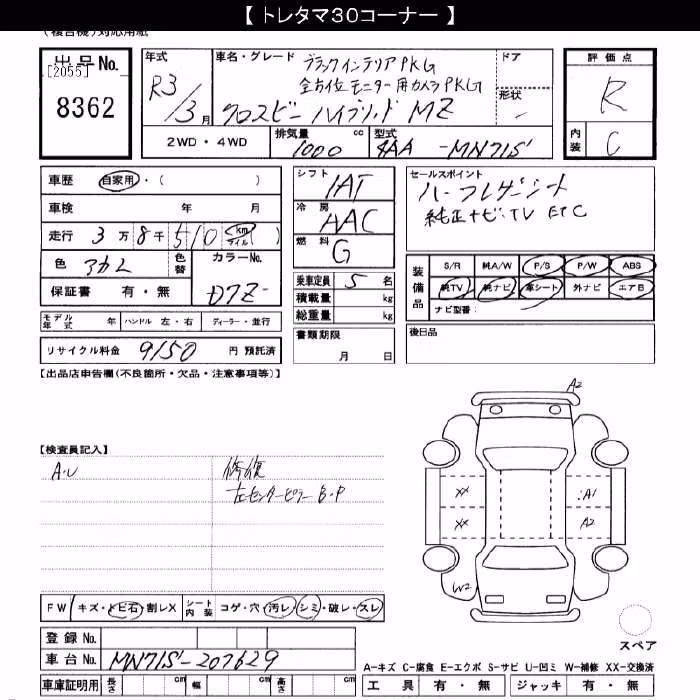 【 トレタマ30コーナー 】
出品No.
[2055]
8362
年式
R3/3月
車名・グレード
ブラックインテリアPKG
全方位モニター用カメラPKG
クロスビー ハイブリッド MZ
ドア
形状
評価点
R
内装
C
2WD・4WD
排気量 cc
1000
型式
4AA-MN71S
車歴 自家用・( )
車検 年 月
走行 3万8千510 km マイル ( )
色 アカM
色替
カラーNo.
D7Z-
保証書 有・無
モデル年式 年 ハンドル 左・右 ディーラー・並行
リサイクル料金 9150 円 預託済
シフト
IAT
冷房
AAC
燃料
G
乗車定員 5 名
積載量 kg
総重量 kg
書類期限
月 日
セールスポイント
ハーフレザーシート
純正ナビ、TV ETC
装備品
S/R 純A/W P/S P/W ABS
純TV 純ナビ 革シート 外ナビ エアB
ナビ型番:
後日品
【出品店申告欄(不良箇所・欠品・注意事項等)】
【検査員記入】
A・U
修復
左センターピラーB・P
A2
XX
XX
A1
A2
W2
FW キズ・トビ石・割レX シート内装 コゲ・穴・汚レ・シミ・破レ・スレ
登録No.
車台No. MN71S-207629
車庫証明用 長さ cm 幅 cm 高さ cm
スペア
A-キズ C-腐食 E-エクボ S-サビ U-凹ミ W-補修 XX-交換済
工具 有・無 ジャッキ 有・無